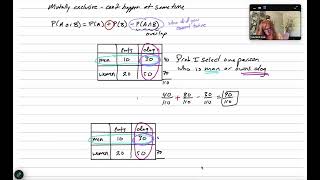 Mutually exclusive - can't happen at same time
P(A or B) = P(A) + P(B) - P(A∩B)
who did you count twice
overlap
Party dog
men 10 30 40
women 20 50 70
80 110
Prob I select one person
who is man or owns dog
40/110 + 80/110 - 30/110 = 90/110
Party dog
men 10 30
women 20 50 70